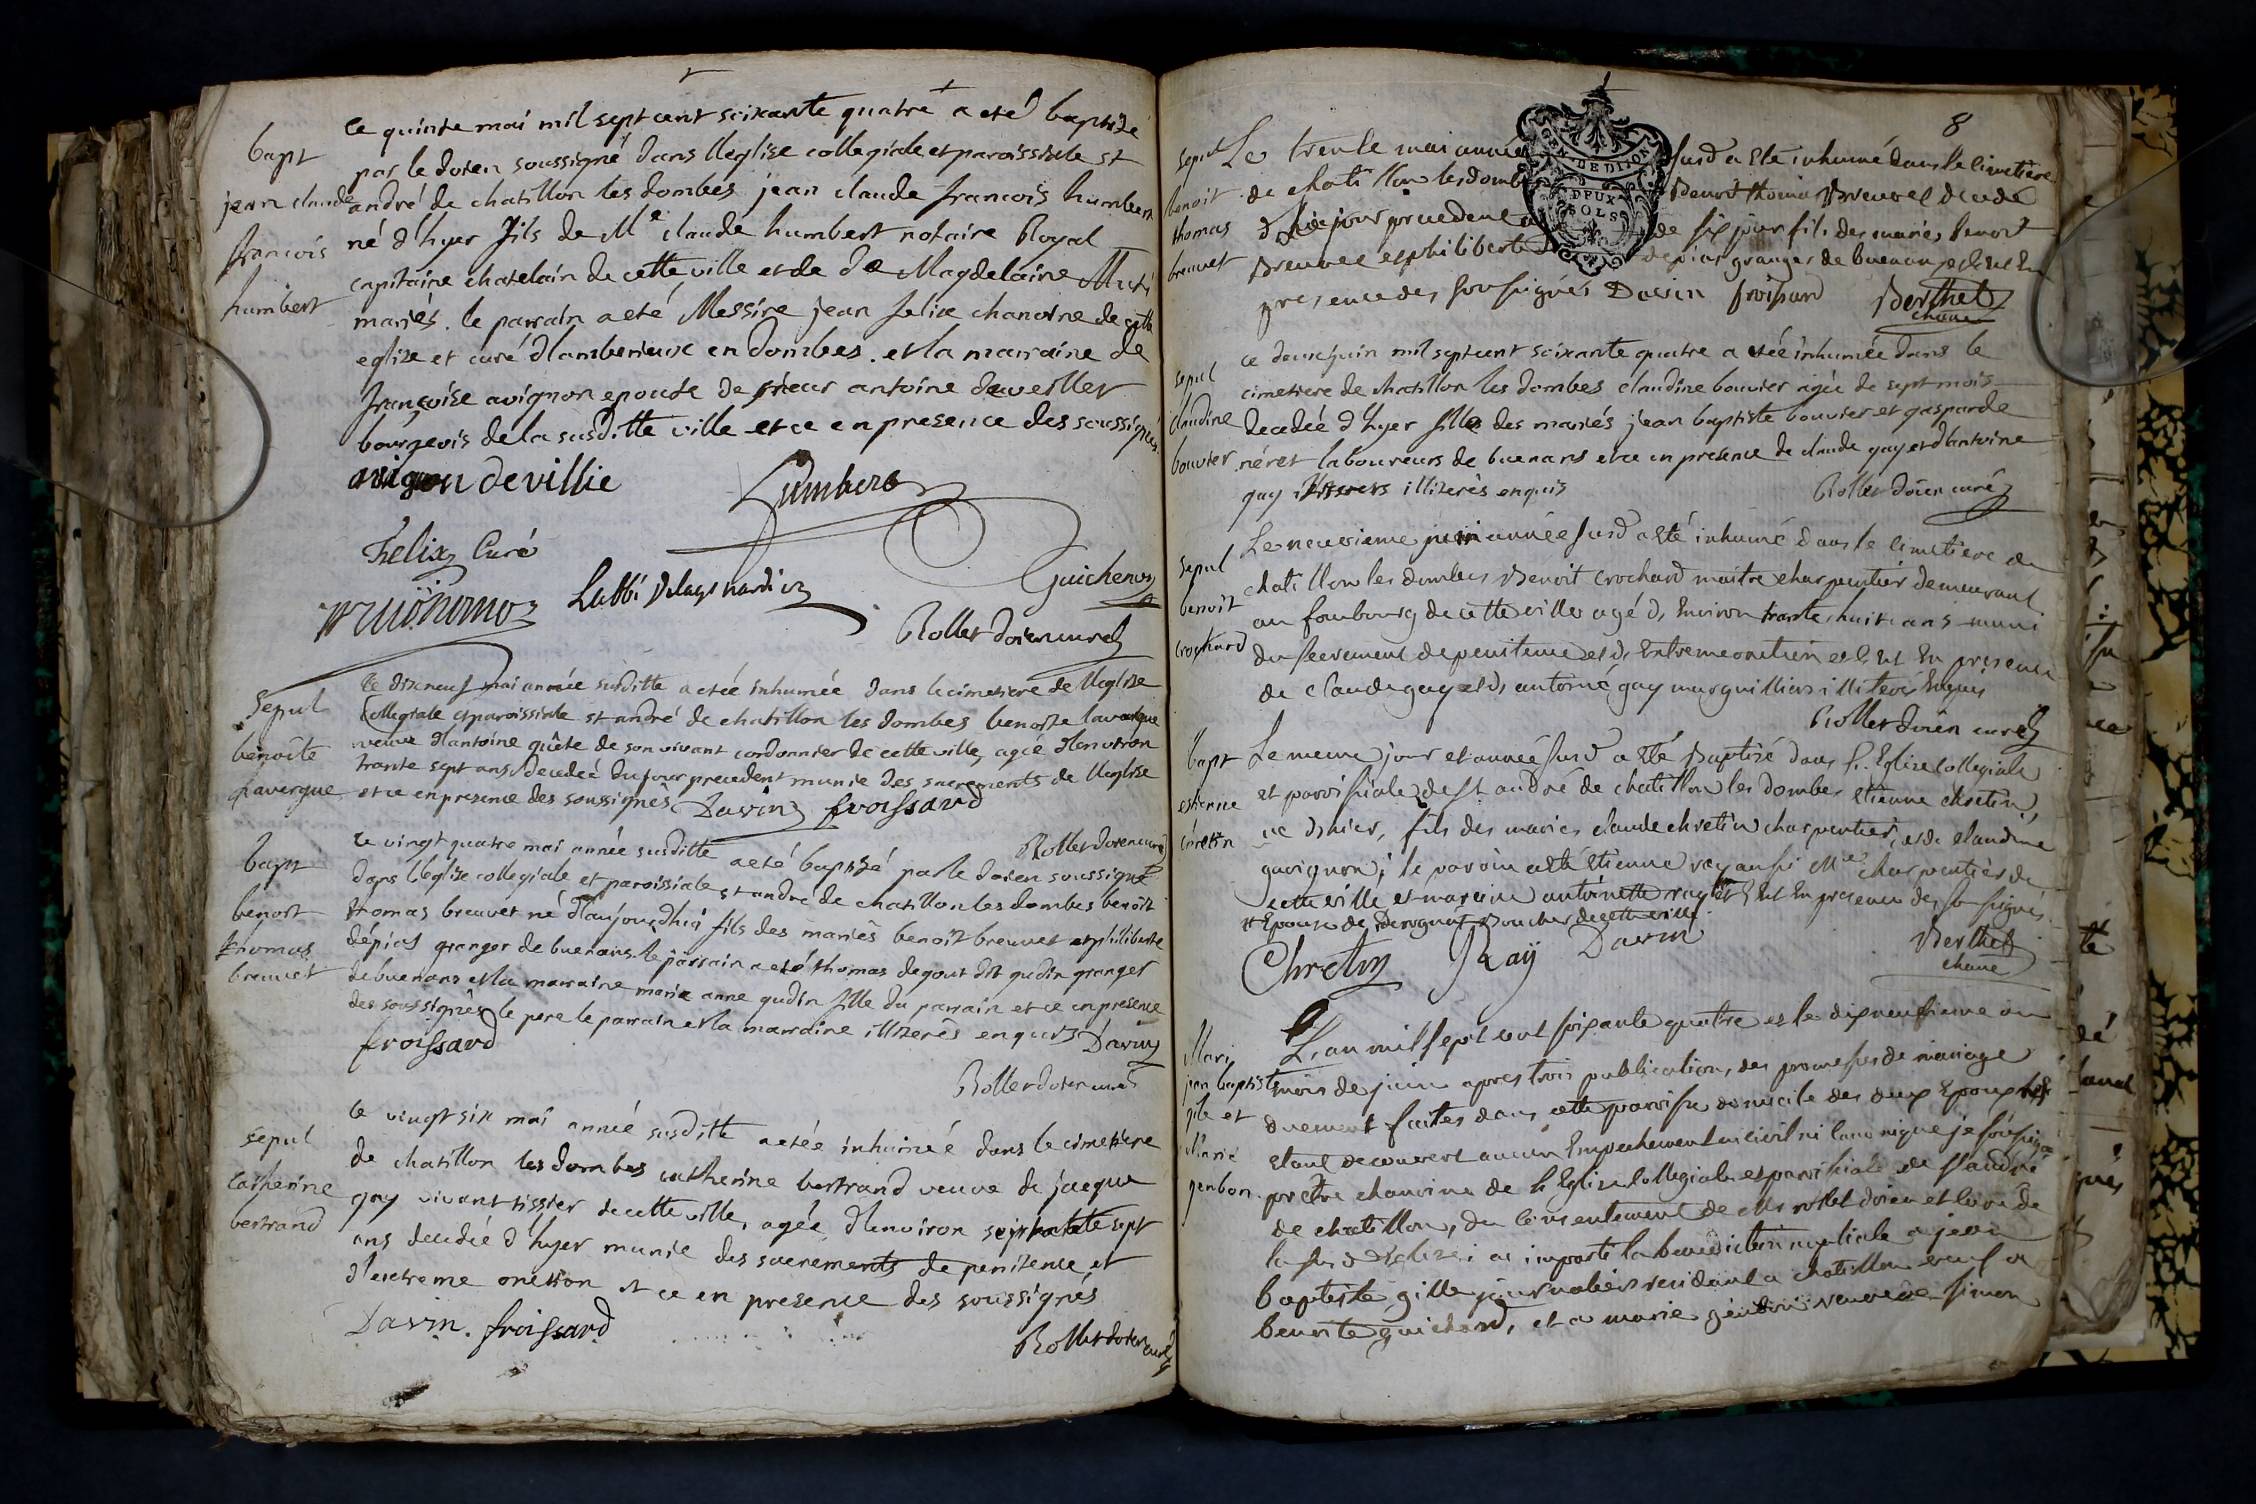 bapt
jean claude
francois
humbert
ce quinze mai mil sept cent soixante quatre a eté baptizé
par le doien soussigné dans l'leglize collegiale et paroissiale st
andré de chatillon les dombes jean claude francois humbert
né d'hyer fils de Me claude humbert notaire Royal
capitaine chatelain de cette ville et de de Magdelaine
mariés. le parrain a eté Messire jean felix chanoine de cette
eglize et curé d'amberieux en dombes. et la marraine de
françoise avignon epouse de sieur antoine deveillet
bourgeois de la susditte ville et ce en presence des soussignés
avignon devillie
humbert
Felix Curé
Guichenon
Rollet doien curé
Sepul
benoite
Lavergne
le dixneuf mai année susditte a etée inhumée dans le cimetiere de l'leglize
Collegiale et paroissiale st andré de chatillon les dombes benoite lavergne
veuve d'antoine quête de son vivant cordonnier de cette ville, agée d'environ
trante sept ans, decedeé du jour precedent munie des sacrements de l'leglize
et ce en presence des soussignés Davin froissard
Rollet doien curé
bapt
benoit
thomas
breuvet
le vingt quatre mai année susditte a eté baptizé par le doien soussigné
dans l'léglize collegiale et paroissiale st andré de chatillon les dombes benoit
thomas breuvet né d'aujourdhui fils des mariés benoit breuvet et philiberte
dépias granger de buenans. le parrain a eté thomas degout dit gudin granger
de buenans et la marraine marie anne gudin fille du parrain et ce en presence
des soussignés le pere le parrain et la marraine illiterés enquis Davin
froissard
Rollet doien curé
Sepul
catherine
bertrand
le vingt six mai année susditte a etée inhumeé dans le cimetiere
de chatillon les dombes catherine bertrand veuve de jacque
gay vivant tissier de cette ville, agée d'environ sept
ans decedée d'hyer munie des sacrements de penitence et
d'extreme onction et ce en presence des soussignés
Davin. froissard
Rollet doien curé
8
GEN. DE DIJON
DEUX
SOLS
Sepul
benoit
thomas
breuvet
Le trente mai année susd a eté inhumé dans le cimetiere
de chatillon les dombes Benoit thomas Breuvet decedé
du jour precedent de six jour fils des mariés benoit
Breuvet et philiberte depias granger de buenans et ce en
presence des soussignés Davin froissard Berthet
chane
Sepul
claudine
bouvier
ce deux juin mil sept cent soixante quatre a etée inhumée dans le
cimetiere de chatillon les dombes claudine bouvier agée de sept mois
decedée d'hyer fille des mariés jean baptiste bouvier et gasparde
néret laboureurs de buenans et ce en presence de claude gay et d'antoine
gay illiterés enquis
Rollet doien curé
Sepul
benoit
crochard
Le neuvieme juin année susd a eté inhumé dans le cimetiere de
chatillon les dombes Benoit Crochard maitre charpentier demeurant
au fombourg de cette ville agé d'environ trante huit ans muni
du sacrement de penitence et d'extreme onction et ce en presence
de claude gay et d'antoine gay marguilliers illiterés enquis
Rollet doien curé
bapt
estienne
cretin
Le meme jour et année susd a eté Baptizé dans l'Eglize Collegiale
et paroissiale de st andré de chatillon les dombes etienne chretin,
né d'hier, fils des mariés claude chretin charpentier, et de claudine
gavignon; le parrain a eté etienne ray aussi Me charpentier de
cette ville et maraine antoinette ray et ce en presence des soussignés
# Epouse de Perognat Boucher de cette ville.
Chretin Ray Davin
Berthet
chane
Mari
jean baptiste
gile et
Marie
genbon
L'an mil sept cent soixante quatre et le dixneufieme du
mois de juin apres trois publications des promesses de mariage
duement faites dans cette paroisse domicile des deux Epoux
etant decouvert aucun Empechement ni civil ni canonique je soussigné
prêtre chanoine de l'Eglize Collegiale et paroissiale de st andré
de chatillon, du consentement de Mr rollet doien et curé de
la susd Eglize; ai imparti la benediction nuptiale a jean
baptiste gille journalier residant a chatillon veuf de
benoite guichard, et a marie genbon veuve de simon